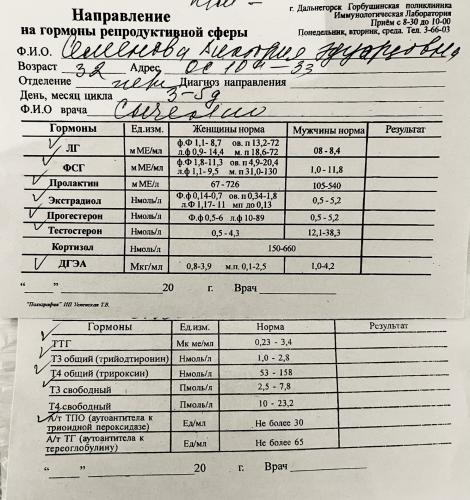 г. Дальнегорск Горбушинская поликлиника
Иммунологическая Лаборатория
Приём с 8-30 до 10-00
Понедельник, вторник, среда. Тел. 3-66-03
Направление
на гормоны репродуктивной сферы
Ф.И.О. Семенова Виктория Эдуардовна
Возраст 32 Адрес ОС 104 - 33
Отделение Диагноз направления
День, месяц цикла 3-5д
Ф.И.О врача
Гормоны Ед.изм. Женщины норма Мужчины норма Результат
ЛГ м МЕ/мл ф.Ф 1,1- 8,7 ов. п 13,2-72 л.ф 0,9- 14,4 м. п 18,6-72 08 - 8,4
ФСГ м МЕ/мл ф.Ф 1,8-11,3 ов. п 4,9-20,4 л.ф 1,1- 9,5 м. п 31,0-130 1,0 - 11,8
Пролактин м МЕ/л 67 - 726 105-540
Экстрадиол Нмоль/л ф.Ф 0,14-0,7 ов. п 0,34-1,8 л.Ф 1,17- 11 мп до 0,13 0,5 - 5,2
Прогестерон Нмоль/л Ф.ф 0,5-6 л.ф 10-89 0,5 - 5,2
Тестостерон Нмоль/л 0,5 - 4,3 12,1-38,3
Кортизол Нмоль/л 150-660
ДГЭА Мкг/мл 0,8-3,9 м.п. 0,1-2,5 1,0-4,2
“___” ____________ 20 г. Врач ____________
"Полиграфия" ИП Успенская Т.В.
Гормоны Ед.изм. Норма Результат
ТТГ Мк ме/мл 0,23 - 3,4
Т3 общий (трийодтиронин) Нмоль/л 1,0 - 2,8
Т4 общий (трироксин) Нмоль/л 53 - 158
Т3 свободный Пмоль/л 2,5 - 7,8
Т4 свободный Пмоль/л 10 - 23,2
А/т ТПО (аутоантитела к триоидной пероксидазе) Ед/мл Не более 30
А/т ТГ (аутоантитела к тереоглобулину) Ед/мл Не более 65
“____” ____________ 20 г. Врач ____________